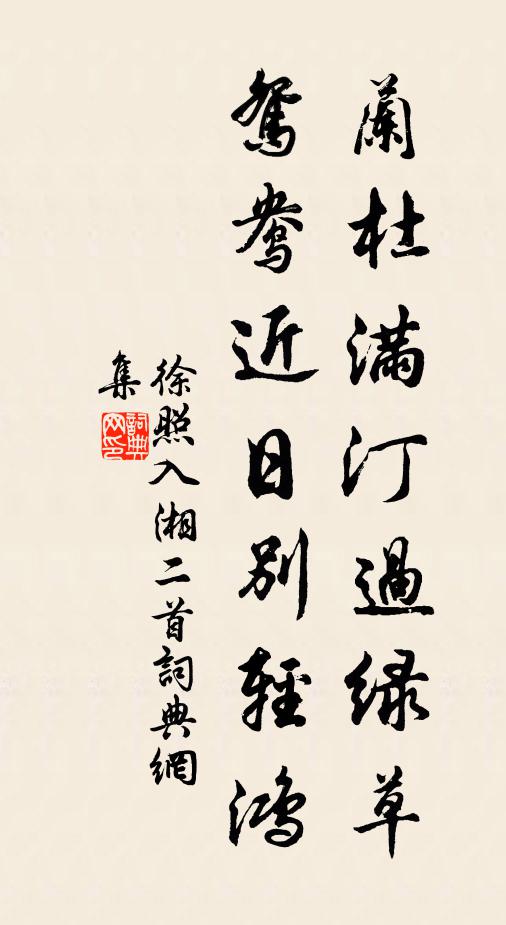 蘭杜滿汀過綠草
鴛鴦近日別輕鴻
徐照入湘二首詞典網
集
詞典
网印